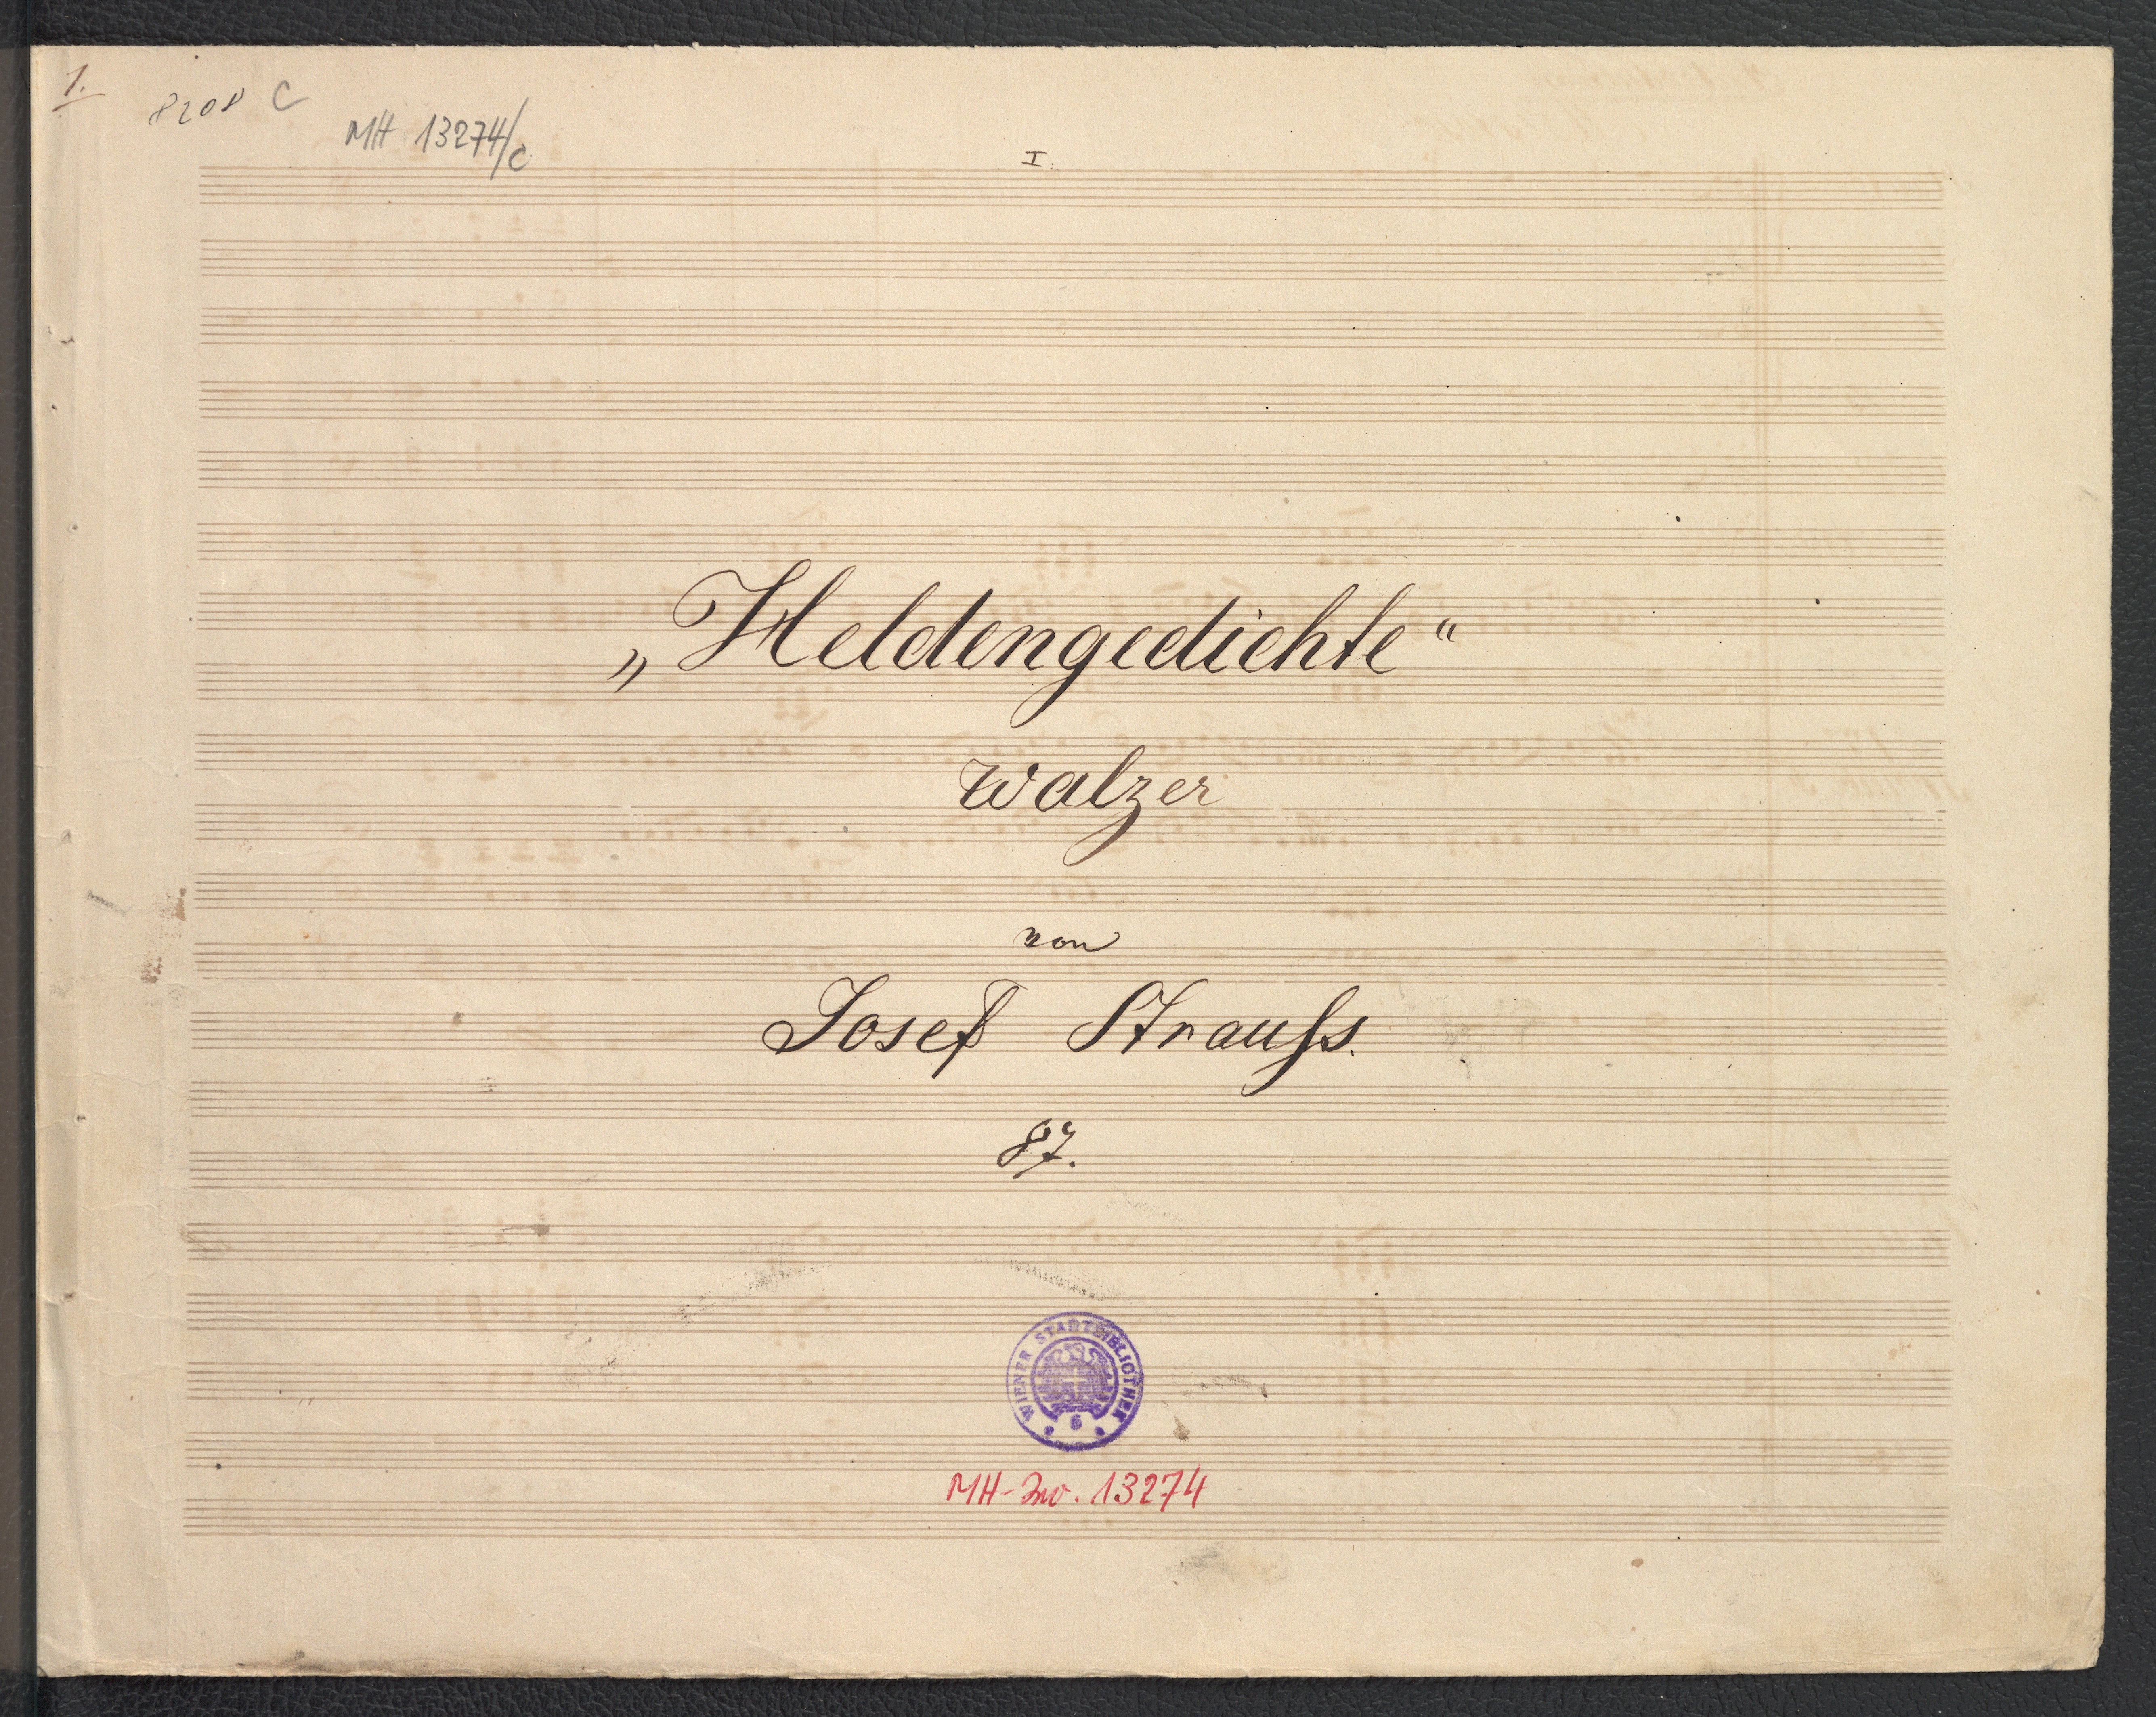 1.
8208 C
MH 13274/c
I.
„Heldengedichte“
Walzer
von
Josef Strauſs.
87.
WIENER STADTBIBLIOTHEK
6
MH-Inv. 13274